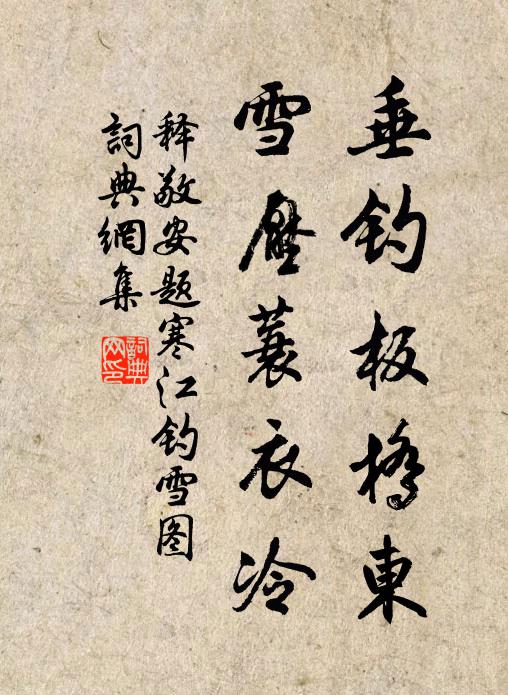 垂钓板橋東
雪壓蓑衣冷
释敬安题寒江钓雪图
詞典網集
詞典网印